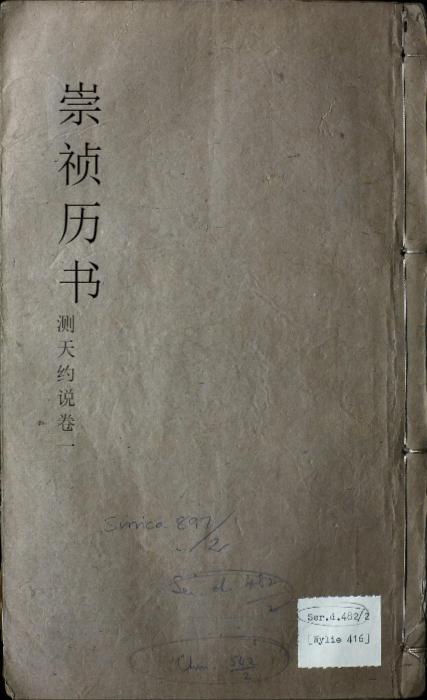 崇祯历书
测天约说卷一
Sinica 897/
2
Ser. d. 482
2
Chin. 542
2
Ser.d.482/2
[Wylie 416]